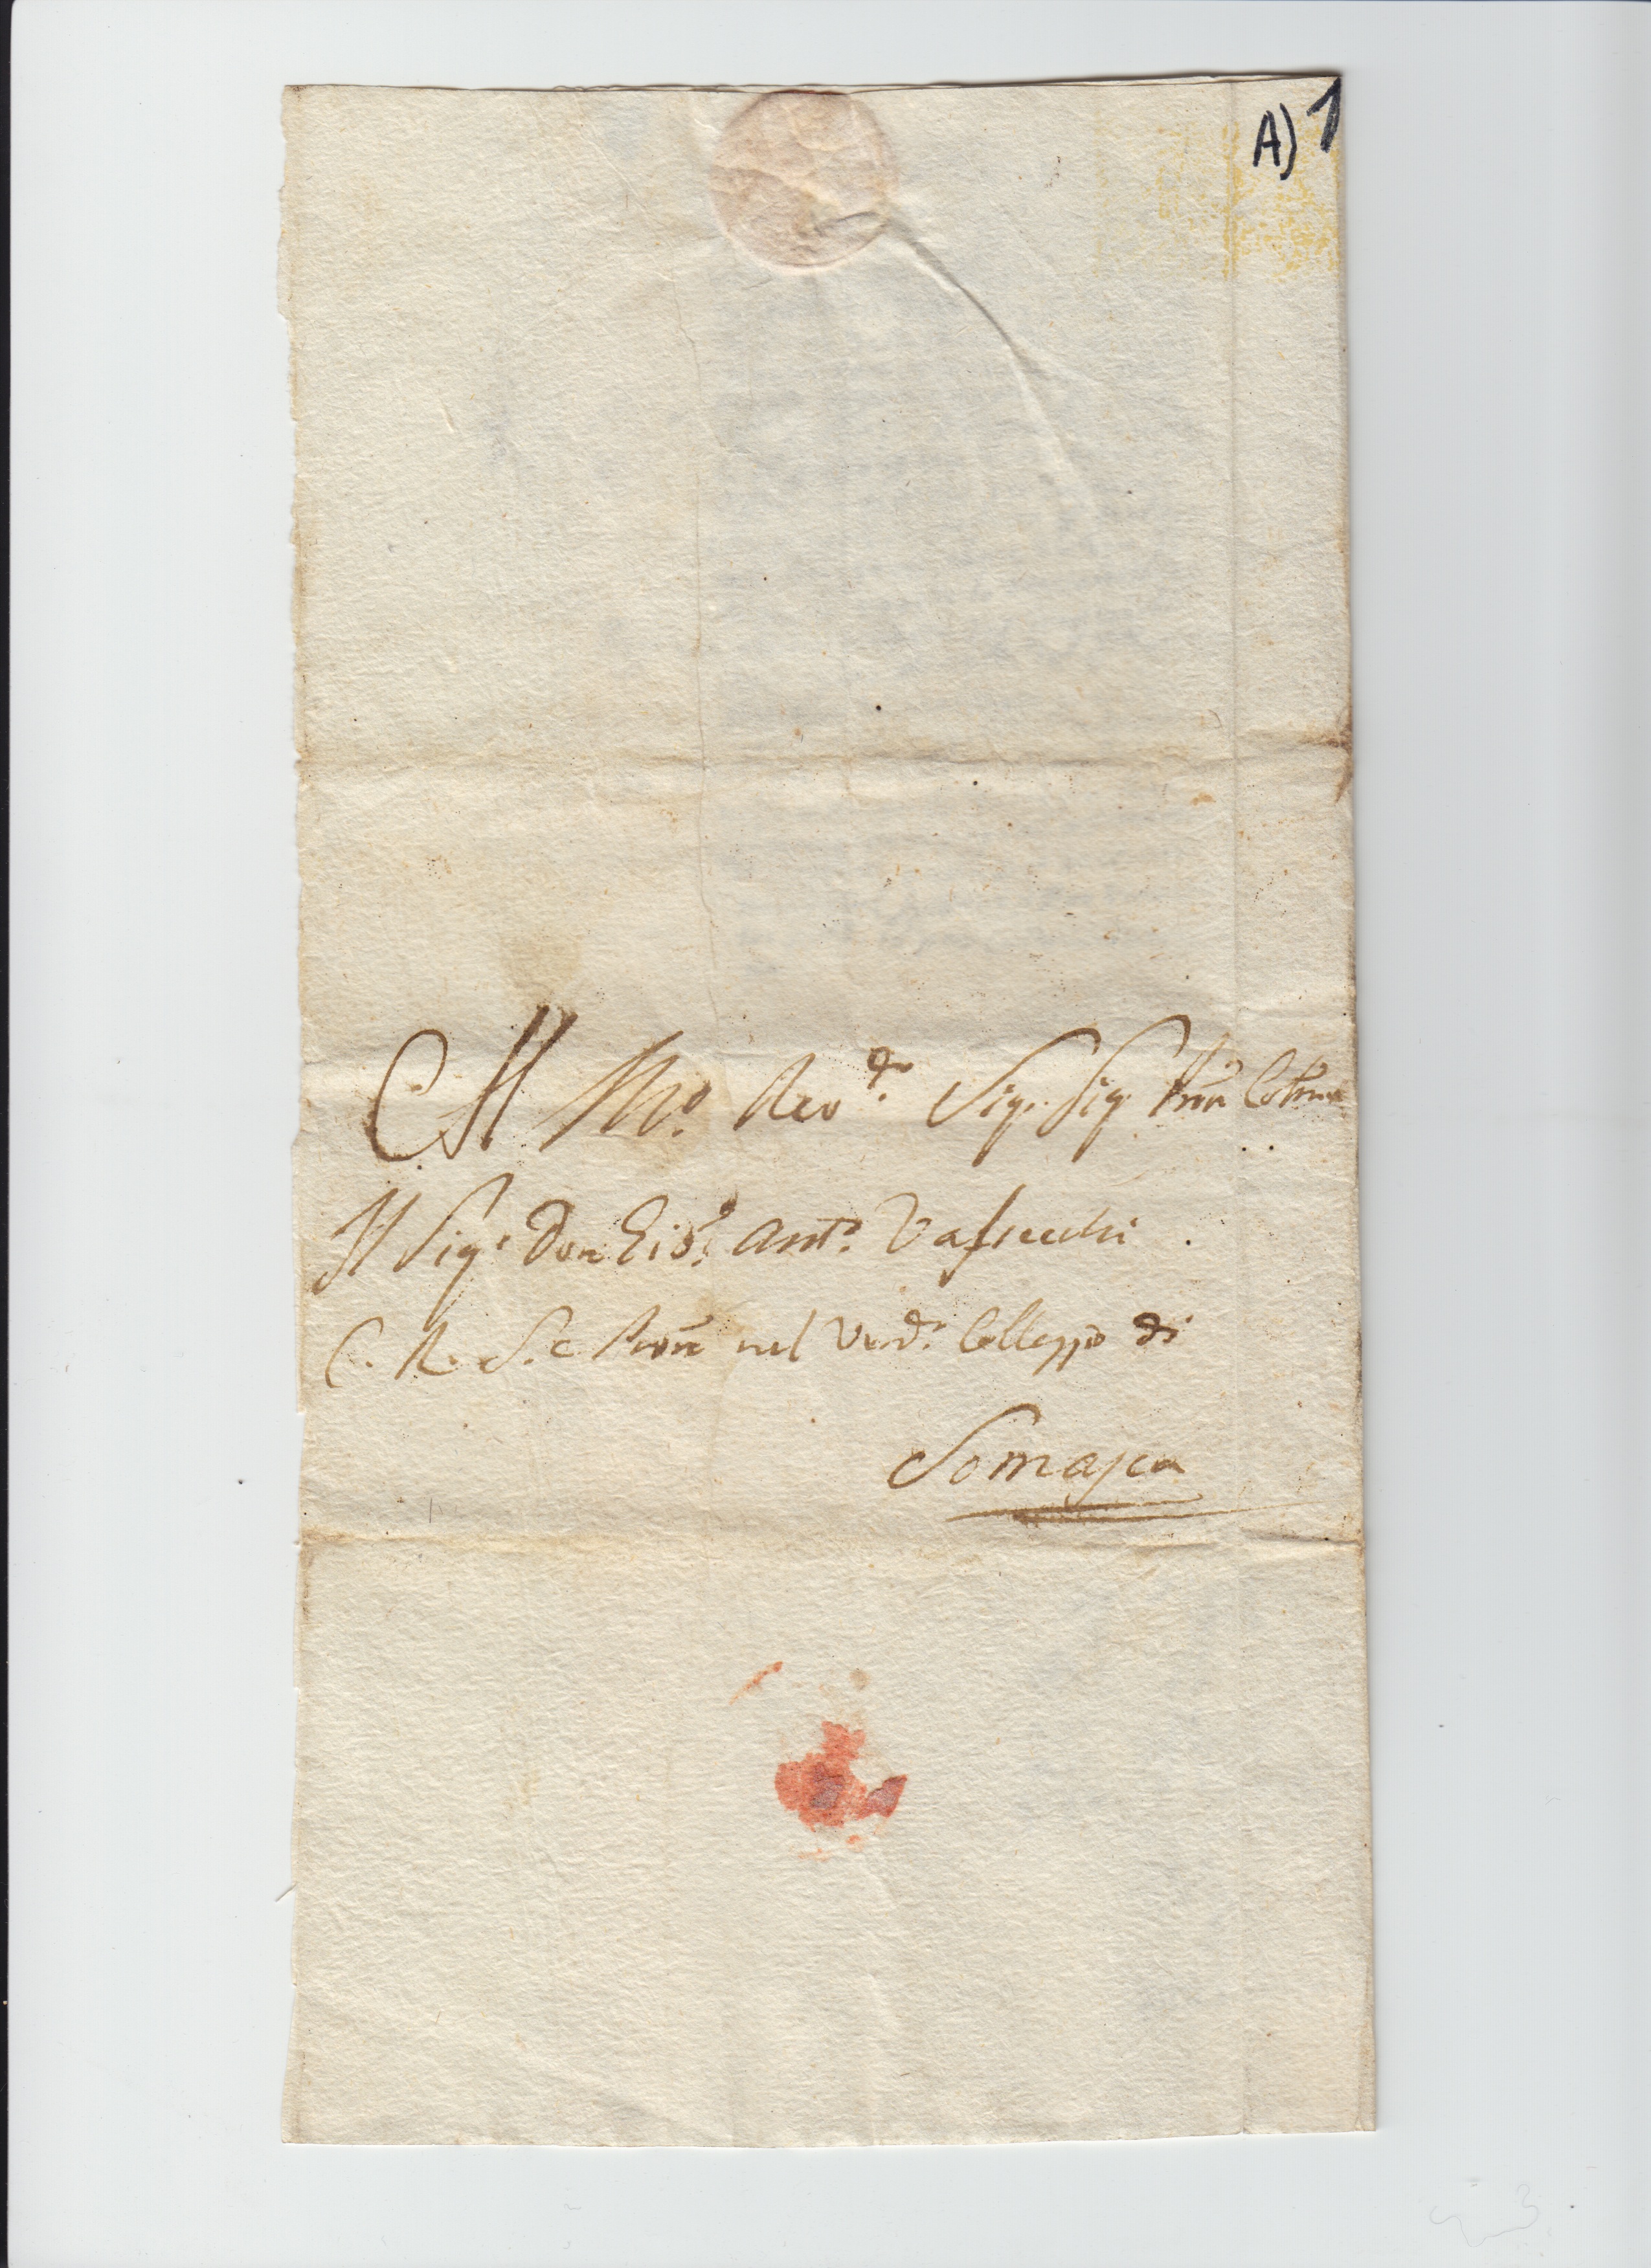 A) 1
Al M.o Rev.do Sig. Sig. Pron Colmo
Il Sig.r Don Gio. Ant.o Valsecchi
C. R. S. e Pron nel Vend.o Colleggio di
Somasca